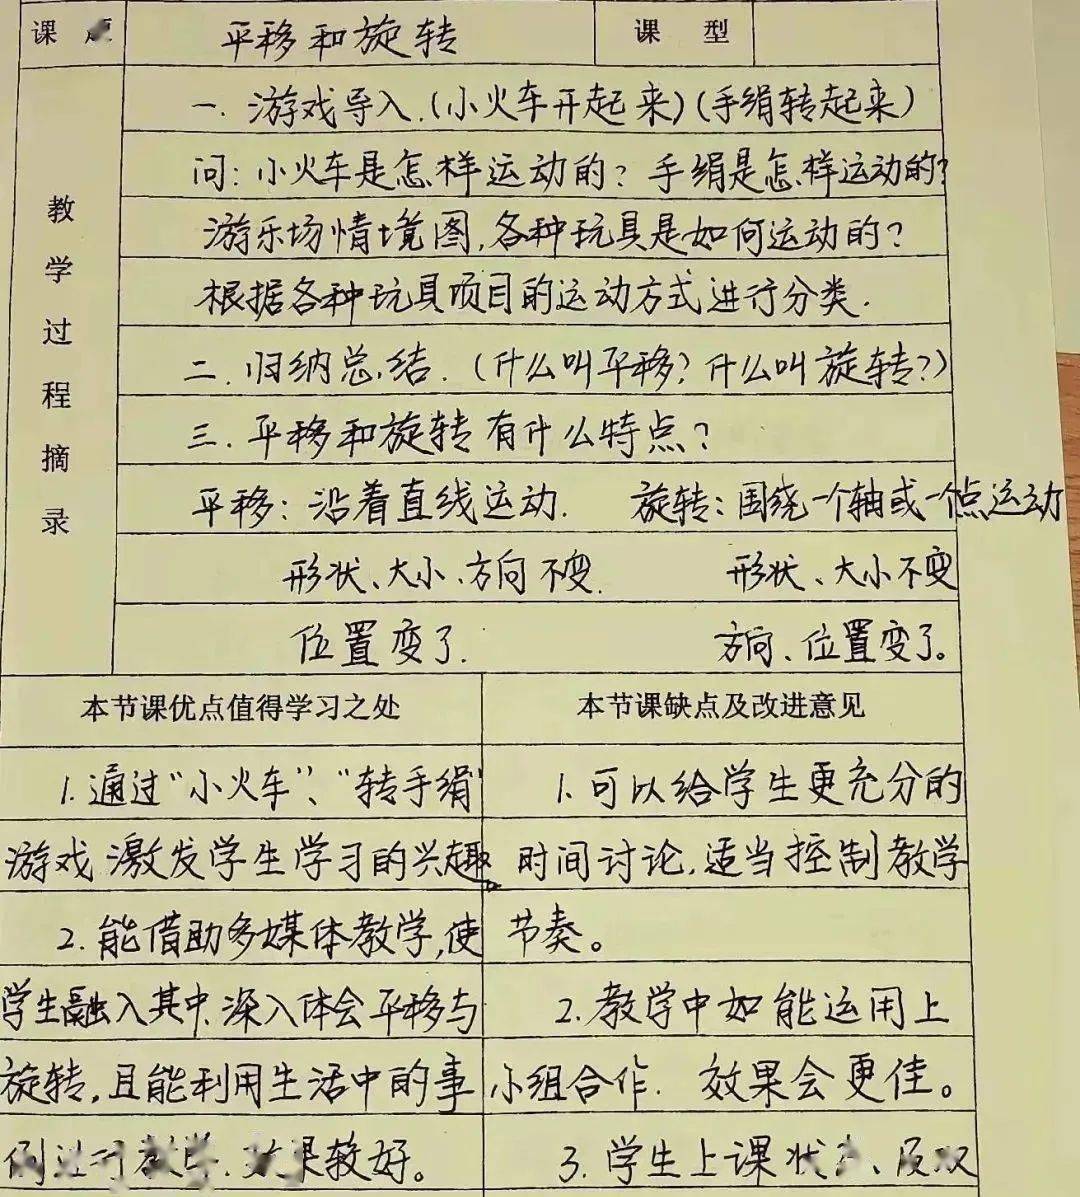 课 平移和旋转 课 型
教学过程摘录
一. 游戏导入.(小火车开起来)(手绢转起来)
问: 小火车是怎样运动的? 手绢是怎样运动的?
游乐场情境图,各种玩具是如何运动的?
根据各种玩具项目的运动方式进行分类.
二. 归纳总结. (什么叫平移? 什么叫旋转?)
三. 平移和旋转有什么特点?
平移: 沿着直线运动. 旋转: 围绕一个轴或一个点运动
形状、大小、方向不变. 形状、大小不变
位置变了. 方向、位置变了。
本节课优点值得学习之处
1. 通过“小火车”、“转手绢”
游戏激发学生学习的兴趣。
2. 能借助多媒体教学,使
学生融入其中.深入体会平移与
旋转,且能利用生活中的事
例 教学. 果较好。
本节课缺点及改进意见
1. 可以给学生更充分的
时间讨论,适当控制教学
节奏。
2. 教学中如能运用上
小组合作. 效果会更佳。
3. 学生上课状